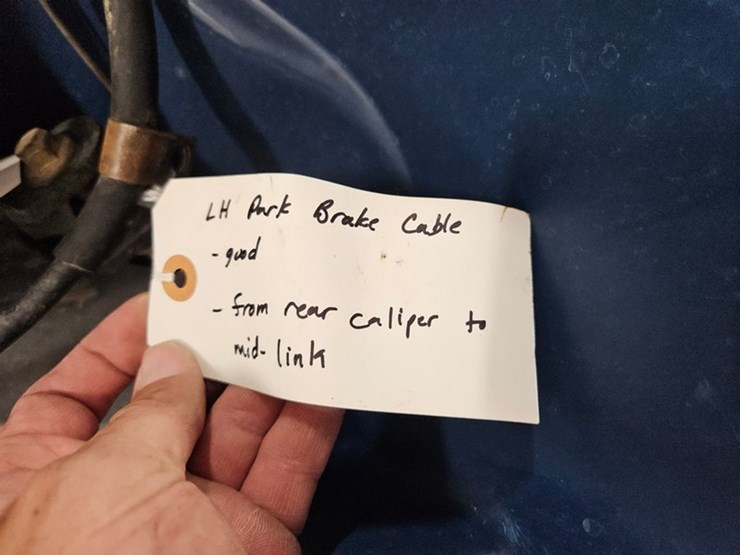 LH Park Brake Cable
- good
- from rear caliper to
mid-link